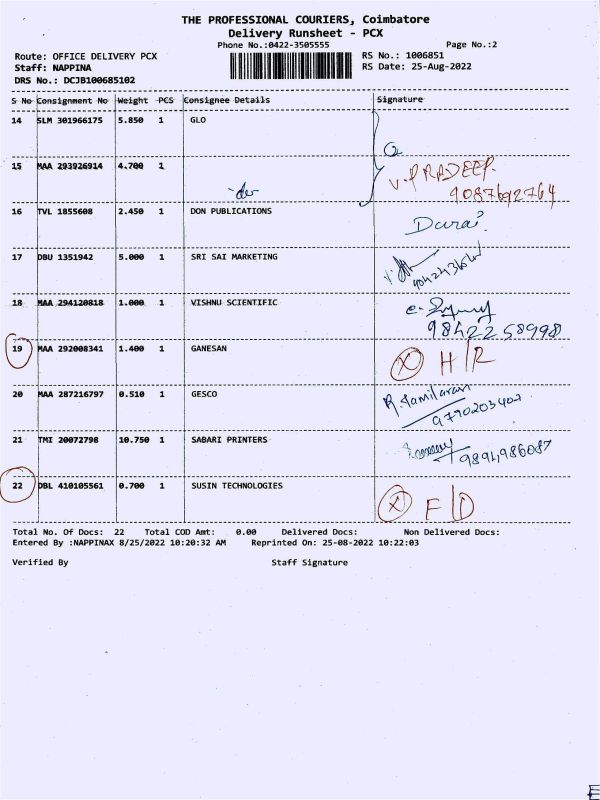 THE PROFESSIONAL COURIERS, Coimbatore
Delivery Runsheet - PCX
Phone No.:0422-3505555
Page No.:2
Route: OFFICE DELIVERY PCX
RS No.: 1006851
Staff: NAPPINA
RS Date: 25-Aug-2022
DRS No.: DCJB100685102
S No Consignment No Weight PCS Consignee Details Signature
14 SLM 301966175 5.850 1 GLO
15 MAA 293926914 4.700 1
V. PRADEEP.
9087692764
16 TVL 1855608 2.450 1 DON PUBLICATIONS
Durai
17 DBU 1351942 5.000 1 SRI SAI MARKETING
18 MAA 294120818 1.000 1 VISHNU SCIENTIFIC
9842258998
19 MAA 292008341 1.400 1 GANESAN X H/R
20 MAA 287216797 0.510 1 GESCO R. Tamilarasan
9790203402
21 TMI 20072798 10.750 1 SABARI PRINTERS
9894986087
22 DBL 410105561 0.700 1 SUSIN TECHNOLOGIES X F/D
Total No. Of Docs: 22 Total COD Amt: 0.00 Delivered Docs: Non Delivered Docs:
Entered By :NAPPINAX 8/25/2022 10:20:32 AM Reprinted On: 25-08-2022 10:22:03
Verified By Staff Signature